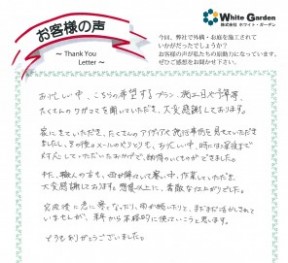 お客様の声
～ Thank You
Letter ～
White Garden
株式会社 ホワイト・ガーデン
今回、弊社で外構・お庭を施工されて
いかがだったでしょうか？
お客様の声が私たちの原動力になっています。
ぜひご感想をお聞かせ下さい。
お忙しい中、こちらの希望するプラン、施工日や予算等、
たくさんのワガママを聞いていただき、大変感謝しております。
家に来ていただき、たくさんのアイディアや施行事例を見せていただき
ましたし、その後のメールのやりとりも、お忙しい中、時には深夜まで
対応していただいたおかげで、納得のいくものができました。
また、職人の方も、雨が降ったり寒い中、作業していただき、
大変感謝しております。想像以上に、素敵な仕上がりでした。
完成後に急に寒くなったり、雨が続いたりと、まだまだ活かしきれて
いませんが、来年から本格的に使おうと思います。
どうもありがとうございました。